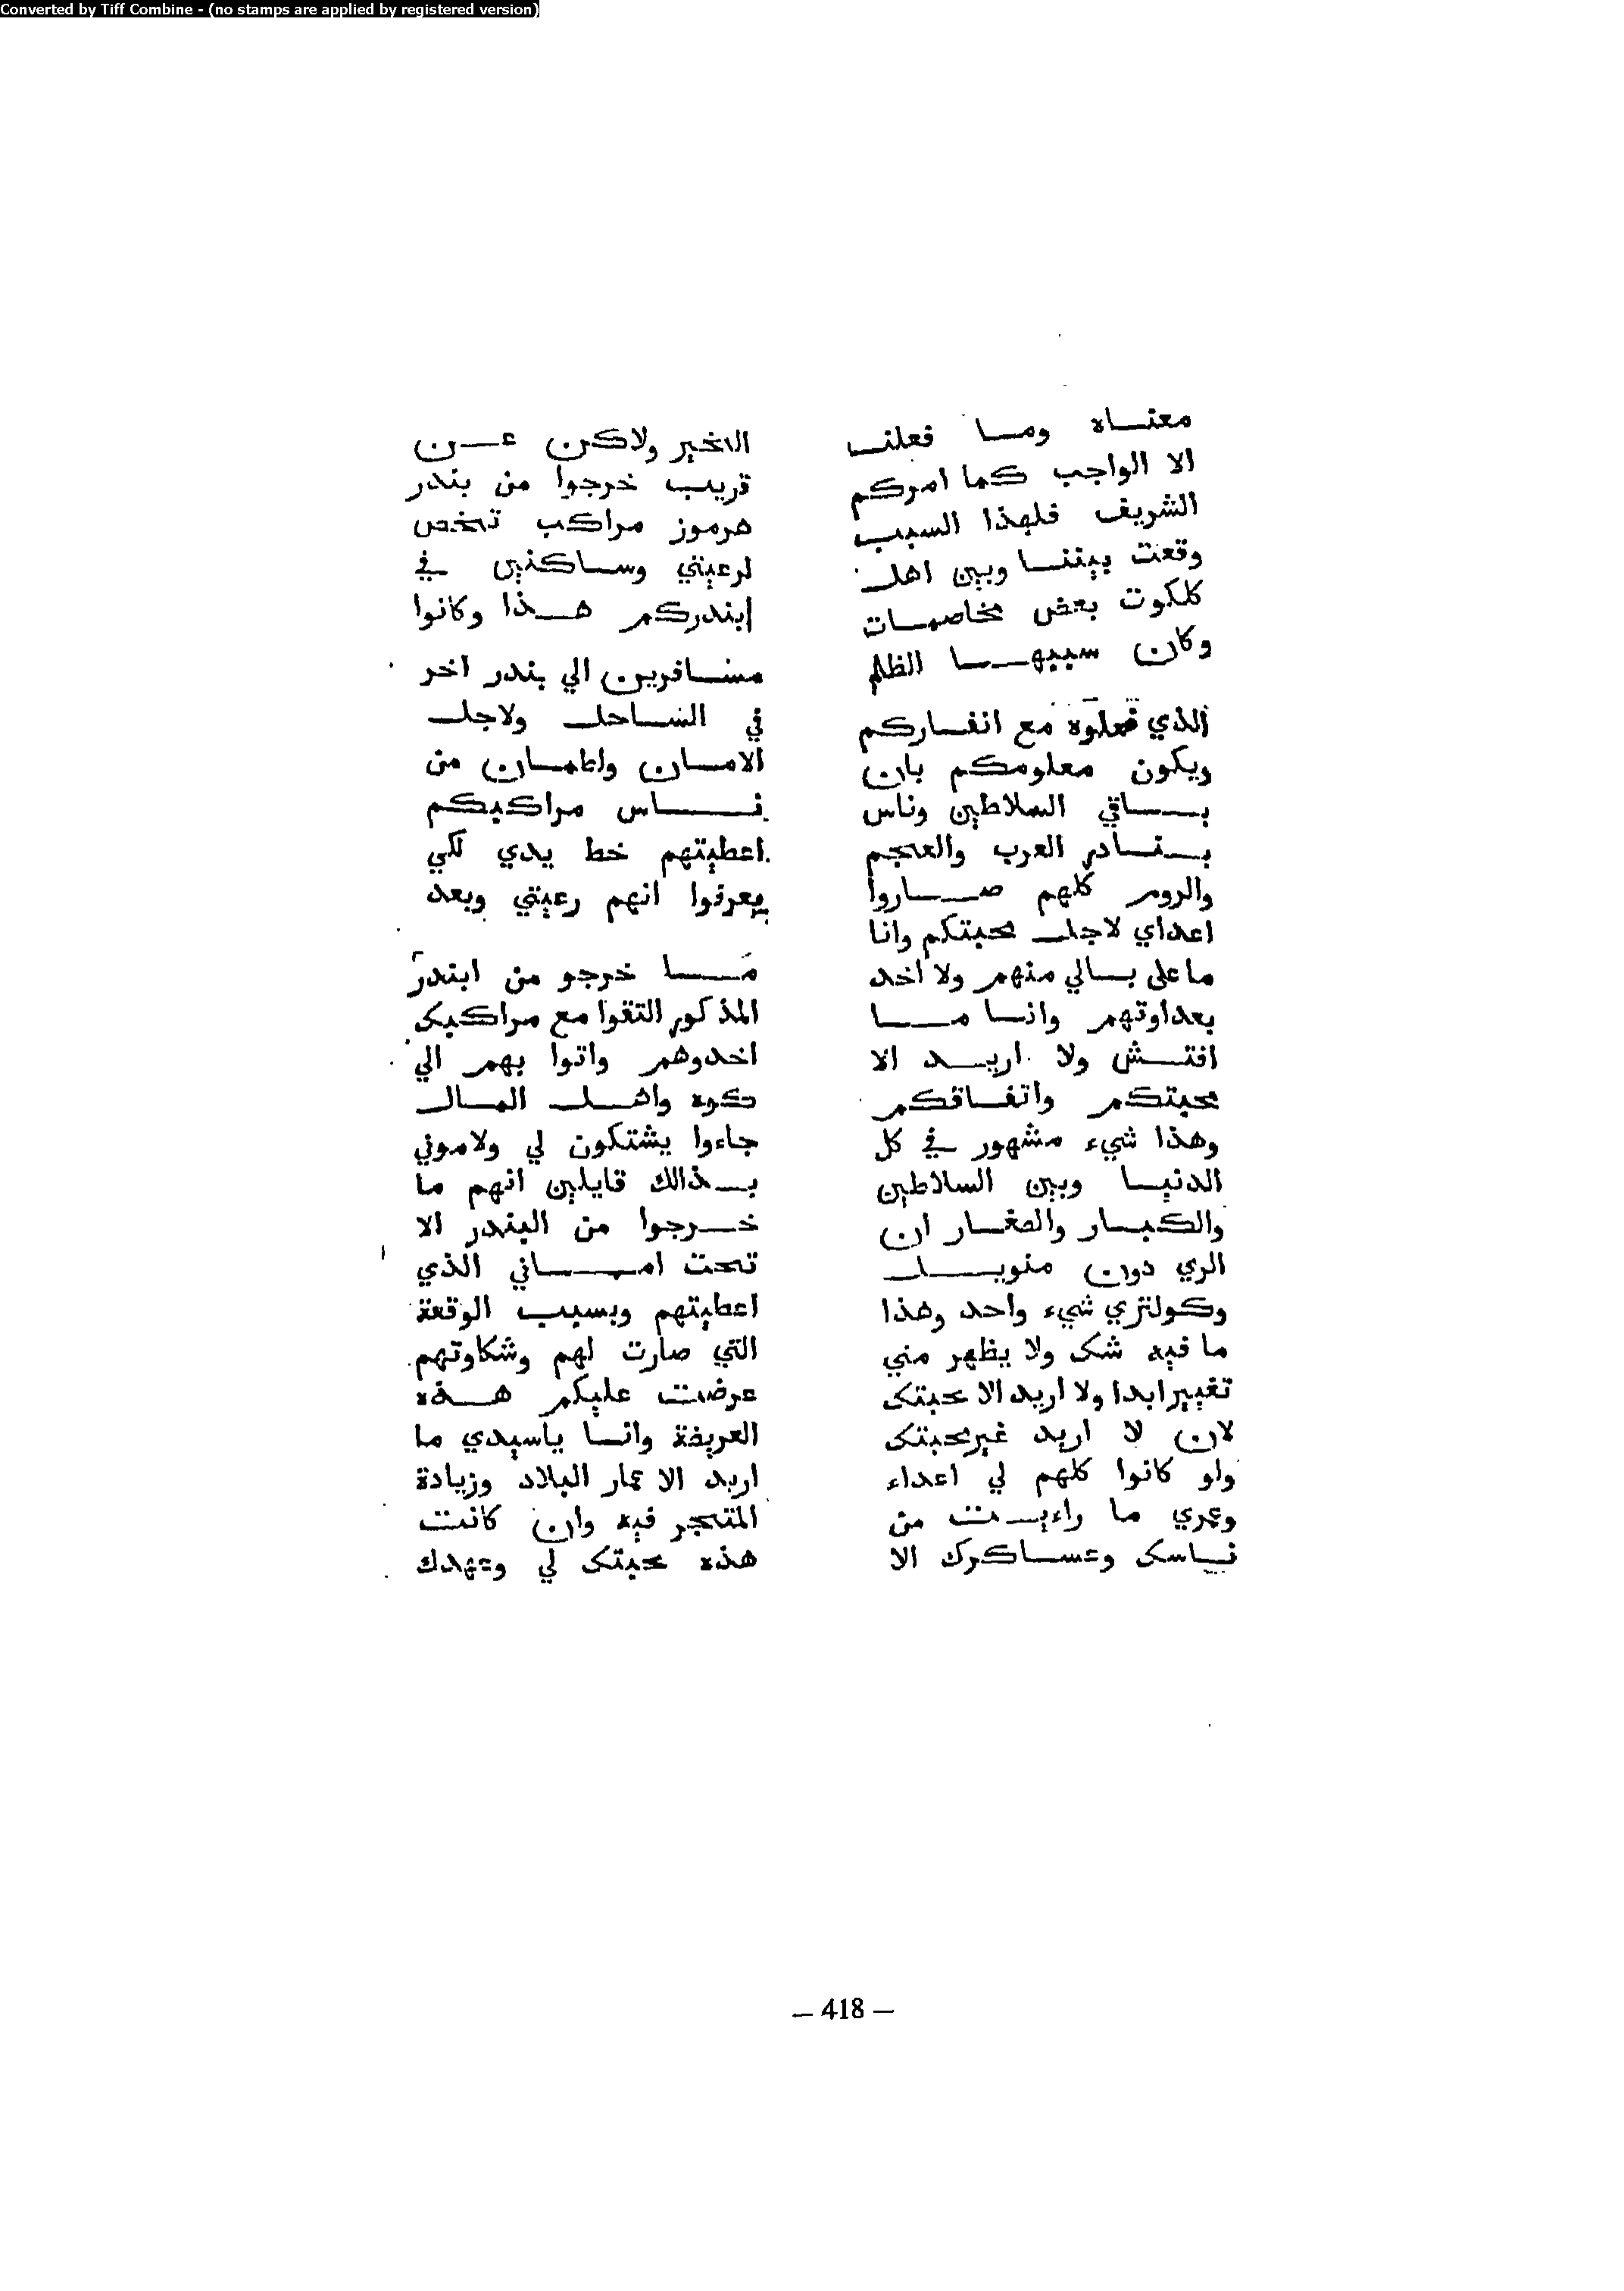 Converted by Tiff Combine - (no stamps are applied by registered version)
معناه وما فعلنا
الا الواجب كما امركم
الشريف فلهذا السبب
وقعت بيننا وبين اهل
كلكوت بعض مخاصمات
وكان سببها الظلم
الذي فعلوه مع انفاركم
ويكون معلومكم بان
باقي السلاطين وناس
بنادر العرب والعجم
والروم كلهم صاروا
اعداي لاجل محبتكم وانا
ما على بالي منهم ولا اخد
بعداوتهم وانا ما
افتش ولا اريد الا
محبتكم واتفاقكم
وهذا شيء مشهور في كل
الدنيا وبين السلاطين
والكبار والصغار ان
الري دون منويل
وكولتري شيء واحد وهذا
ما فيه شك ولا يظهر مني
تغيير ابدا ولا اريد الا محبتك
لان لا اريد غير محبتك
ولو كانوا كلهم لي اعداء
وعمري ما راءيت من
ناسك وعساكرك الا
الخير ولاكن عن
قريب خرجوا من بندر
هرموز مراكب تخص
لرعيتي وساكنين في
ابندركم هذا وكانوا
مسافرين الي بندر اخر
في الساحل ولاجل
الامان واطمان من
ناس مراكبكم
اعطيتهم خط يدي لكي
يعرفوا انهم رعيتي وبعد
ما خرجو من ابندر
المذكور التقوا مع مراكبك
اخدوهم واتوا بهم الي
واهل المال
جاءوا يشتكون لي ولاموني
بذالك قايلين انهم ما
خرجوا من البندر الا
تحت اماني الذي
اعطيتهم وبسبب الوقعة
التي صارت لهم وشكاوتهم
عرضت عليكم هذه
العريضة وانا ياسيدي ما
اريد الا عمار البلاد وزيادة
المتجر فيه وان كانت
هذه محبتك لي وعهدك
— 418 —